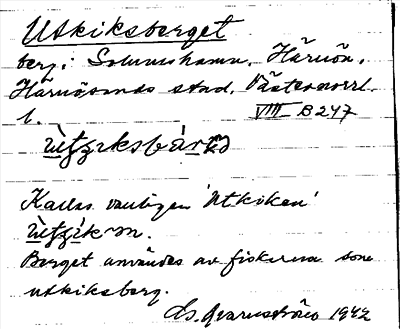 Utkiksberget
berg i Solumshamn, Härnön,
Härnösands stad, Västernorrl.
l. VIII B 247
Kallas vanligen 'Utkiken'
Berget användes av fiskarna som
utkiksberg.
1942